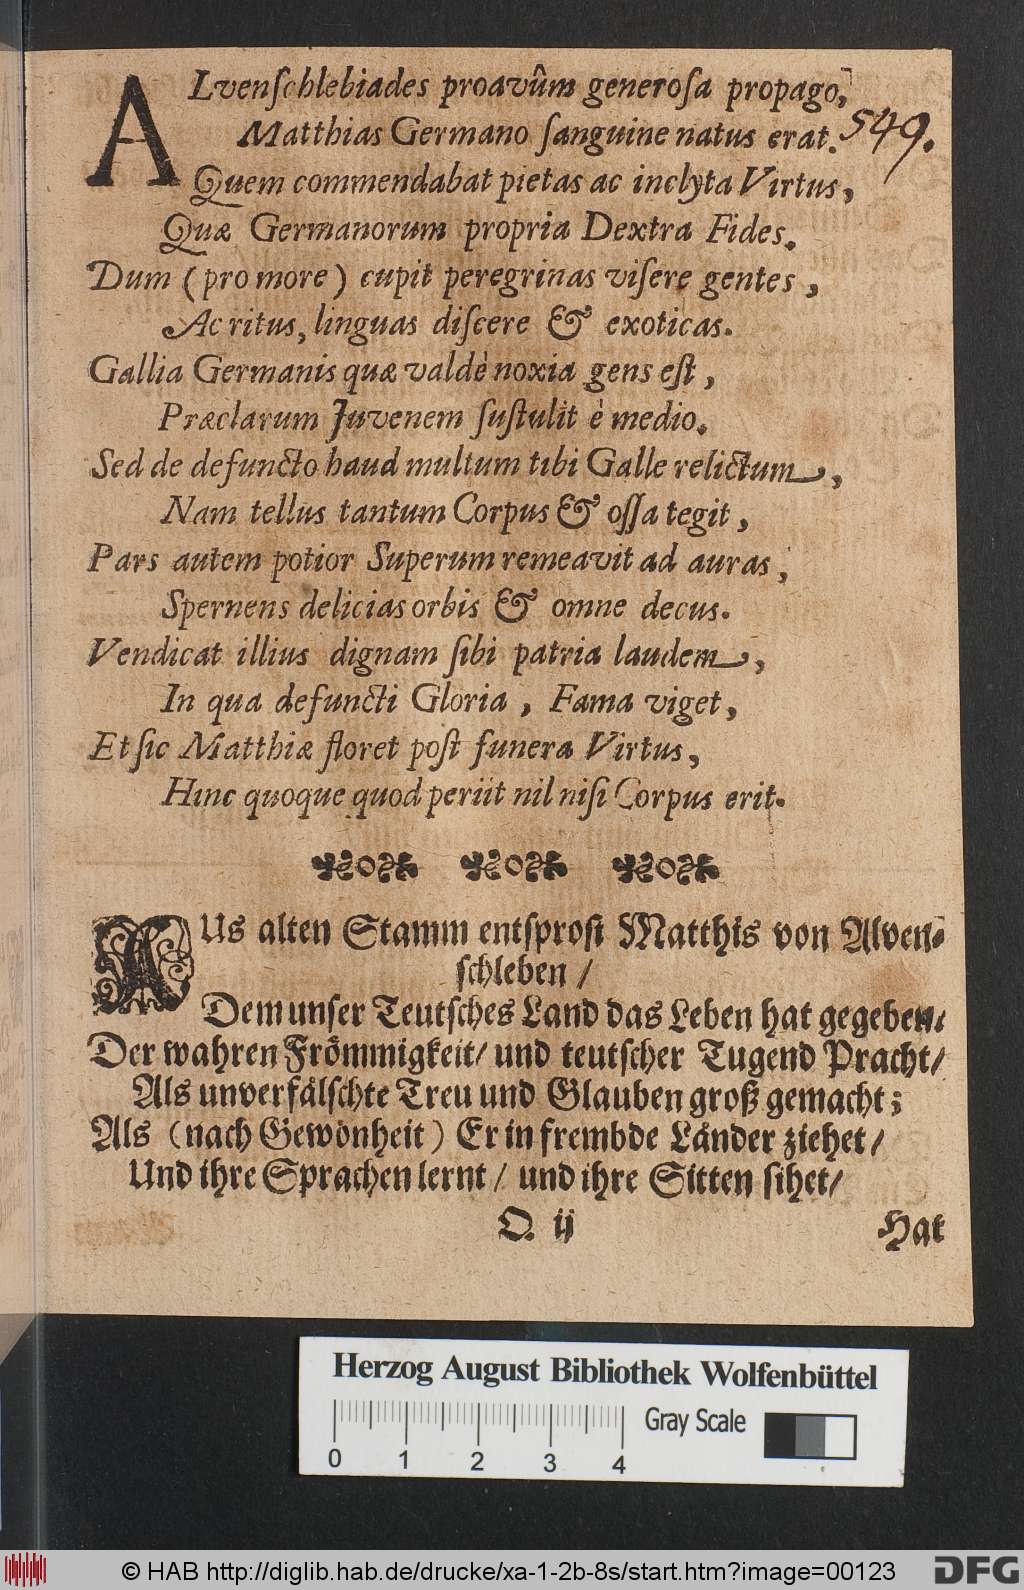 ALvenſchlebiades proavûm generoſa propago,
549.
Matthias Germano ſanguine natus erat.
Quem commendabat pietas ac inclyta Virtus,
Quæ Germanorum propria Dextra Fides.
Dum (pro more) cupit peregrinas viſere gentes,
Ac ritus, linguas diſcere & exoticas.
Gallia Germanis quæ valdè noxia gens eſt,
Præclarum Juvenem ſuſtulit è medio.
Sed de defuncto haud multum tibi Galle relictum,
Nam tellus tantum Corpus & oſſa tegit,
Pars autem potior Superum remeavit ad auras,
Spernens delicias orbis & omne decus.
Vendicat illius dignam ſibi patria laudem,
In qua defuncti Gloria, Fama viget,
Et ſic Matthiæ floret poſt funera Virtus,
Hinc quoque quod periit nil niſi Corpus erit.
AUs alten Stamm entſproſt Matthis von Alven-
ſchleben /
Dem unſer Teutſches Land das Leben hat gegeben/
Der wahren Frömmigkeit/ und teutſcher Tugend Pracht/
Als unverfälſchte Treu und Glauben groß gemacht;
Als (nach Gewonheit) Er in frembde Länder ziehet/
Und ihre Sprachen lernt/ und ihre Sitten ſihet/
O ij
Hat
Herzog August Bibliothek Wolfenbüttel
Gray Scale
0 1 2 3 4
© HAB http://diglib.hab.de/drucke/xa-1-2b-8s/start.htm?image=00123
DFG